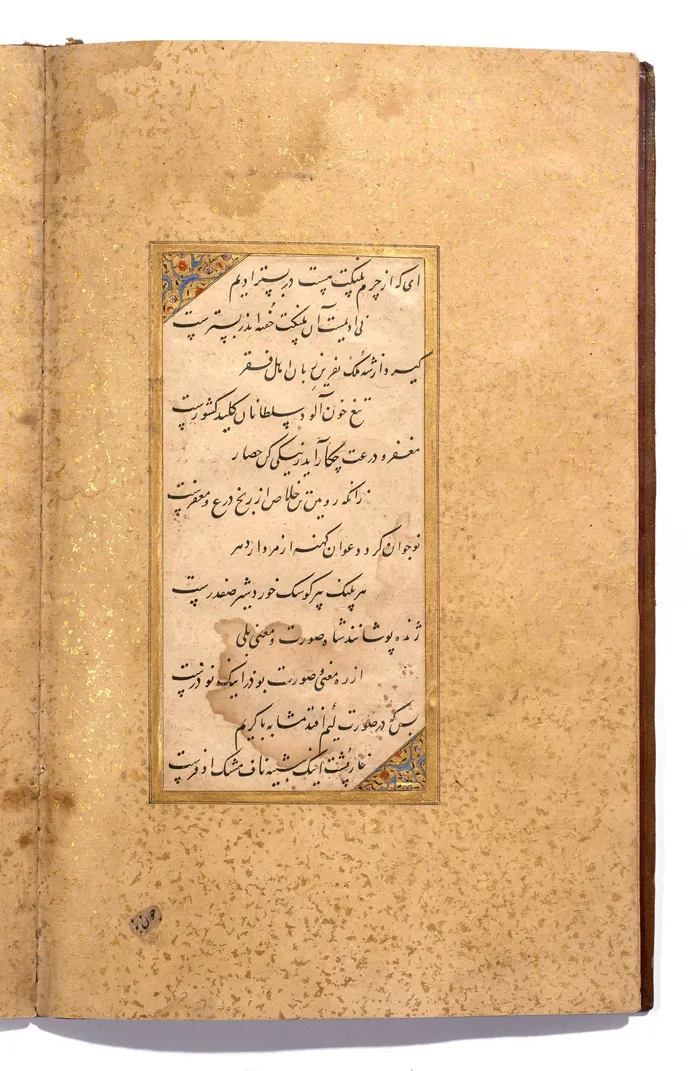 ای که از چرم پلنگت هست در بستر ادیم
نی ادیمست آن پلنگت خفته اندر بسترست
کیرد از شه ملک نفرین زبان اهل فقر
تیغ خون آلود سلطانان کلید کشورست
مغفر و درعت چکار آید ز نیکی کن حصار
زانکه رویین تن خلاص از رنج درع و مغفرست
نوجوان کردد عوان کهنه از مردار دهر
هر پلنک پیر کو سک خورد شیر صفدرست
ژنده پوشانند شاه صورت و معنی بلی
از ره معنی و صورت بوذر اینک نوذرست
بس که در صورت لئیم افتد مشابه با کریم
خارپشت اینک شبیه ناف مشک اذفرست